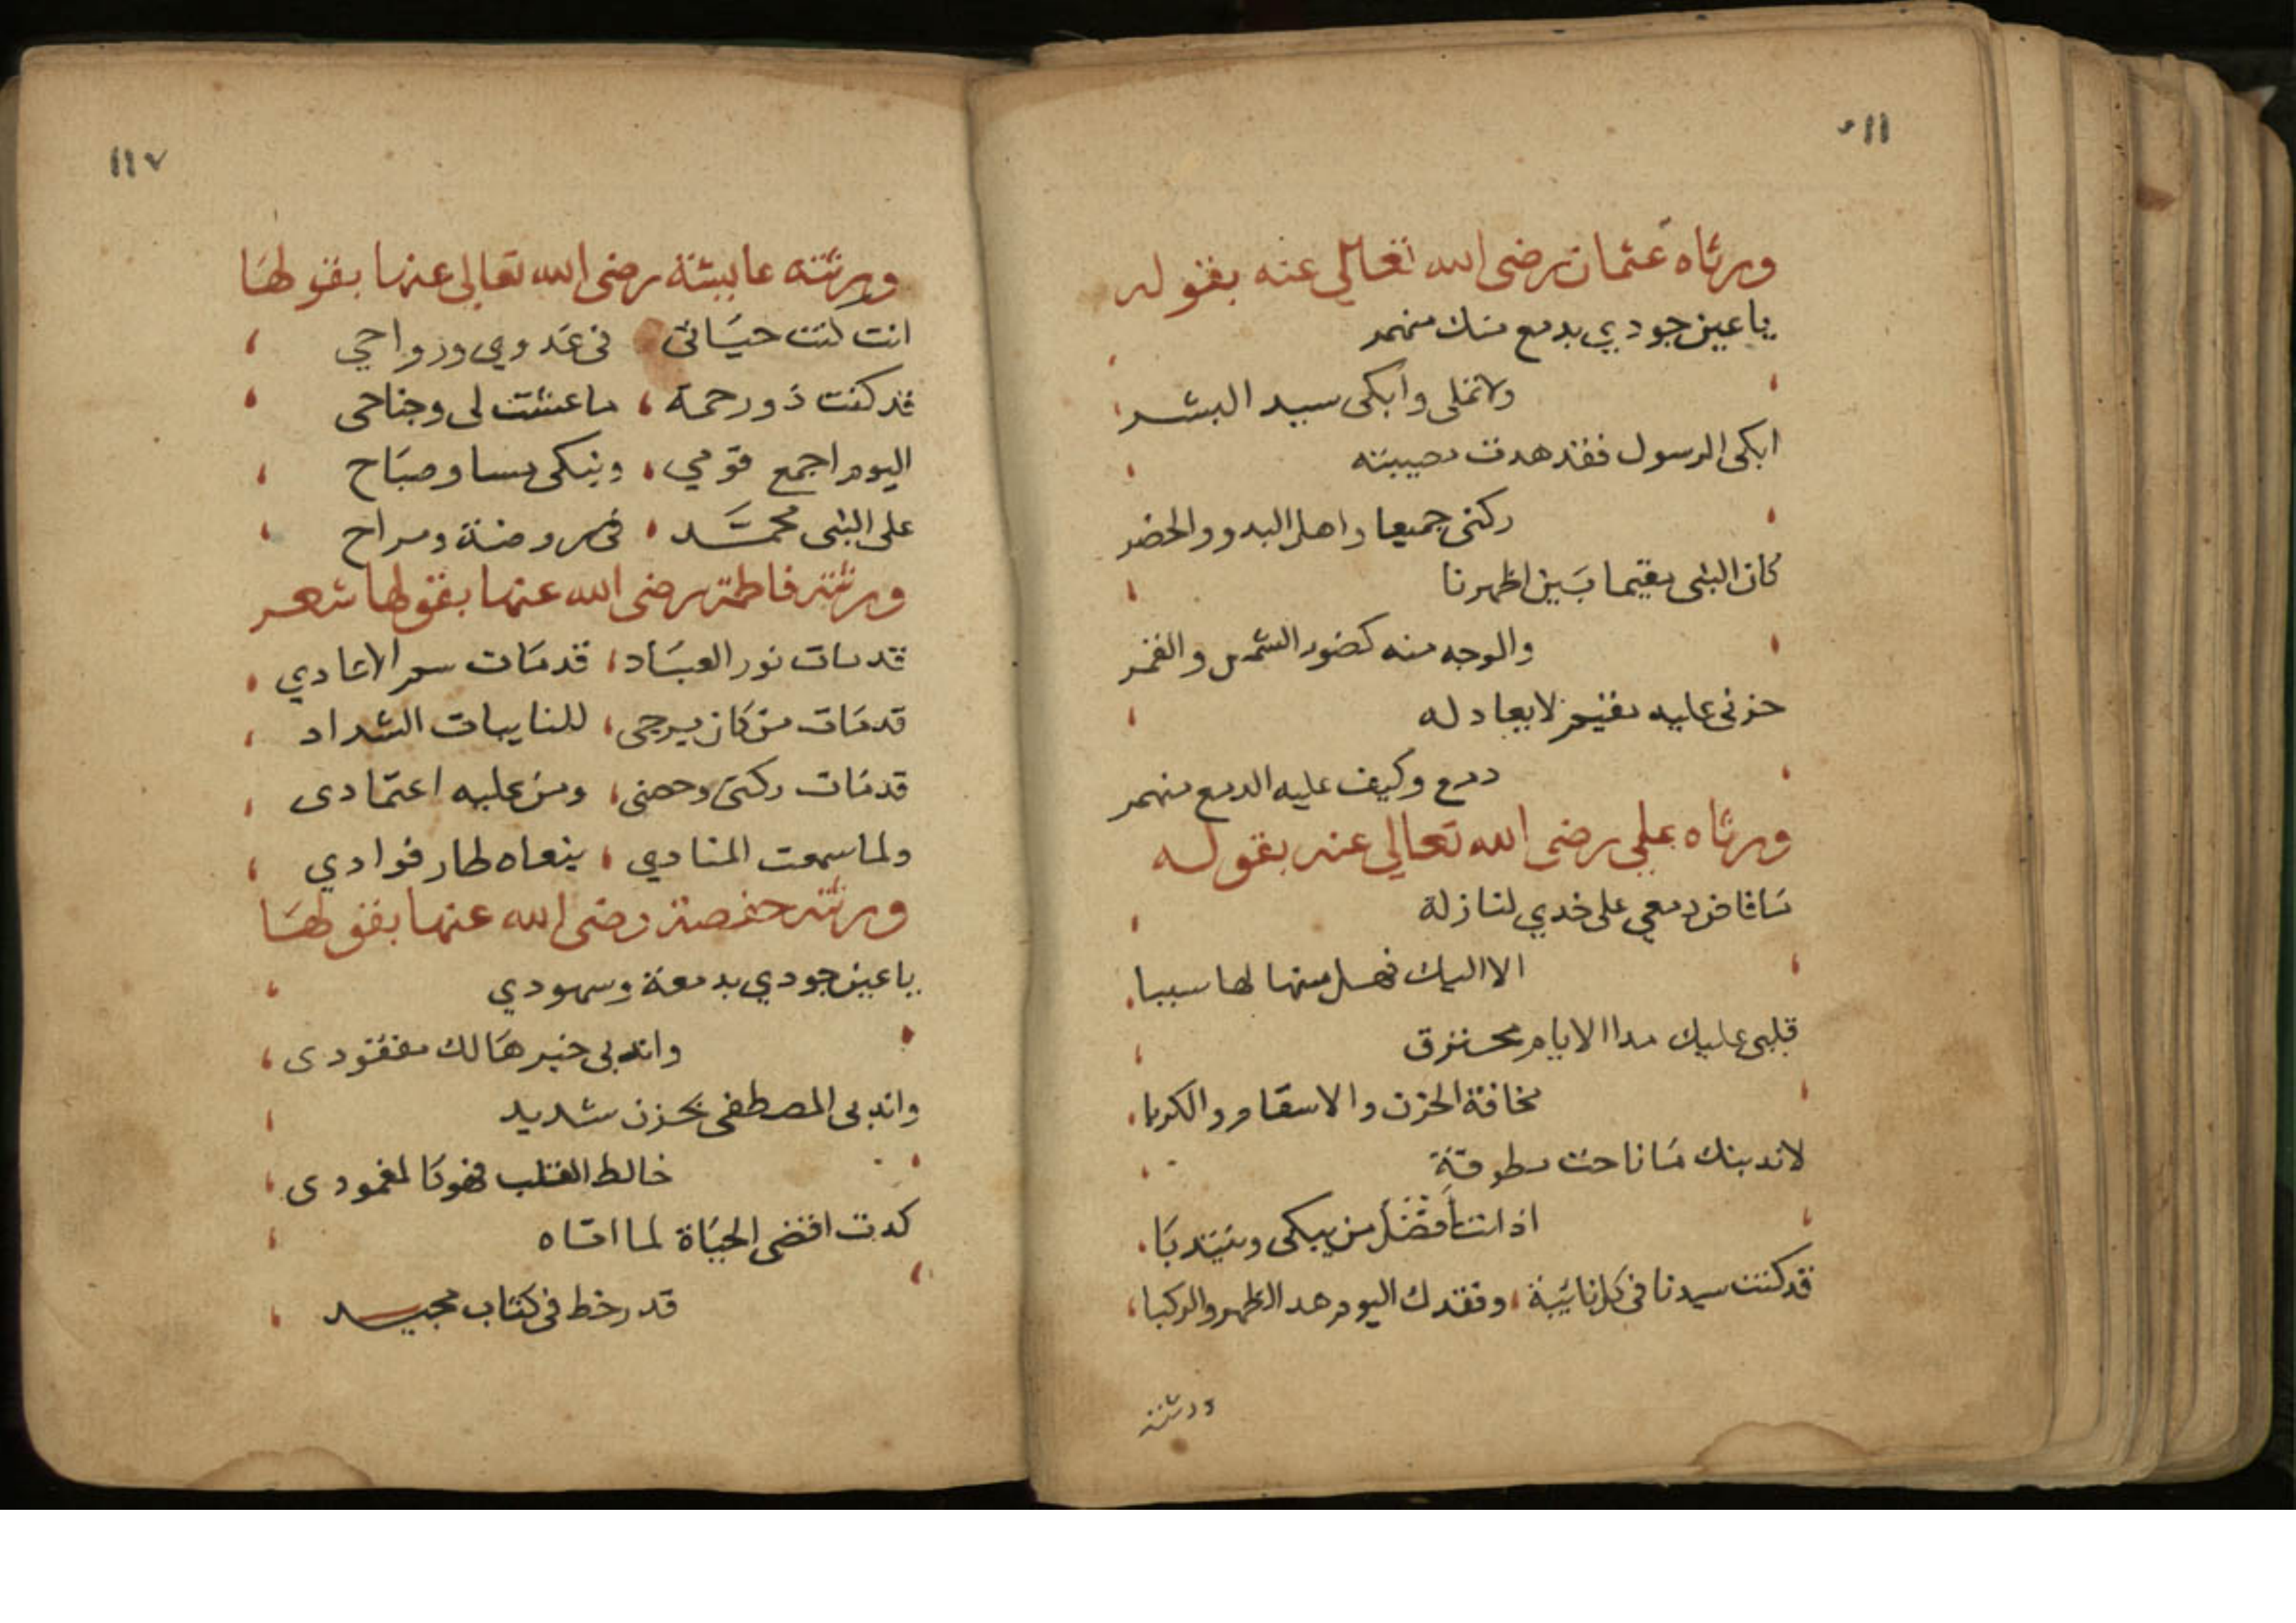 ١١٦
ورثاه عثمان رضى الله تعالى عنه بقوله
ياعين جودي بدمع منك منهمر
ولا تملى وابكى سيد البشر
ابكى الرسول فقد هدت مصيبته
ركنى جميعا واهل البدو والحضر
كان النبى مقيما بين اظهرنا
والوجه منه كضوء الشمس والقمر
حزنى عليه مقيم لا يعادله
دمع وكيف عليه الدمع منهمر
ورثاه علي رضى الله تعالى عنه بقوله
ما فاض دمعي على خدي لنازلة
الا اليك فهل منها لها سببا
قلبى عليك مدا الايام محترق
مخافة الحزن والاسقام والكربا
لاندبنك ما ناحت مطوقة
اذ انت افضل من يبكى ويندبا
قد كنت سيدنا فى كل نايبة، وفقدك اليوم هد الظهر والركبا،
ورثته
١١٧
ورثته عايشة رضى الله تعالى عنها بقولها
انت كنت حياتى فى غدوي ورواحي ،
قد كنت ذو رحمة ، ما عشت لى وجناحى ،
اليوم اجمع قومي ، ونبكى مسا وصباح ،
على النبى محمد ، فى روضة ومراح ،
ورثته فاطمة رضى الله عنها بقولها شعر
قد مات نور العباد ، قد مات سم الاعادي ،
قد مات من كان يرجى ، للنايبات الشداد ،
قد مات ركنى وحصنى ، ومن عليه اعتمادى ،
ولما سمعت المنادي ، ينعاه طار فوادي ،
ورثته حفصة رضى الله عنها بقولها
ياعين جودي بدمعة وسهودي ،
واندبى خير هالك مفقودى ،
واندبى المصطفى بحزن شديد ،
خالط القلب فهو كالمغمودى ،
كدت اقضى الحياة لما اتاه ،
قدر خط فى كتاب مجيد ،